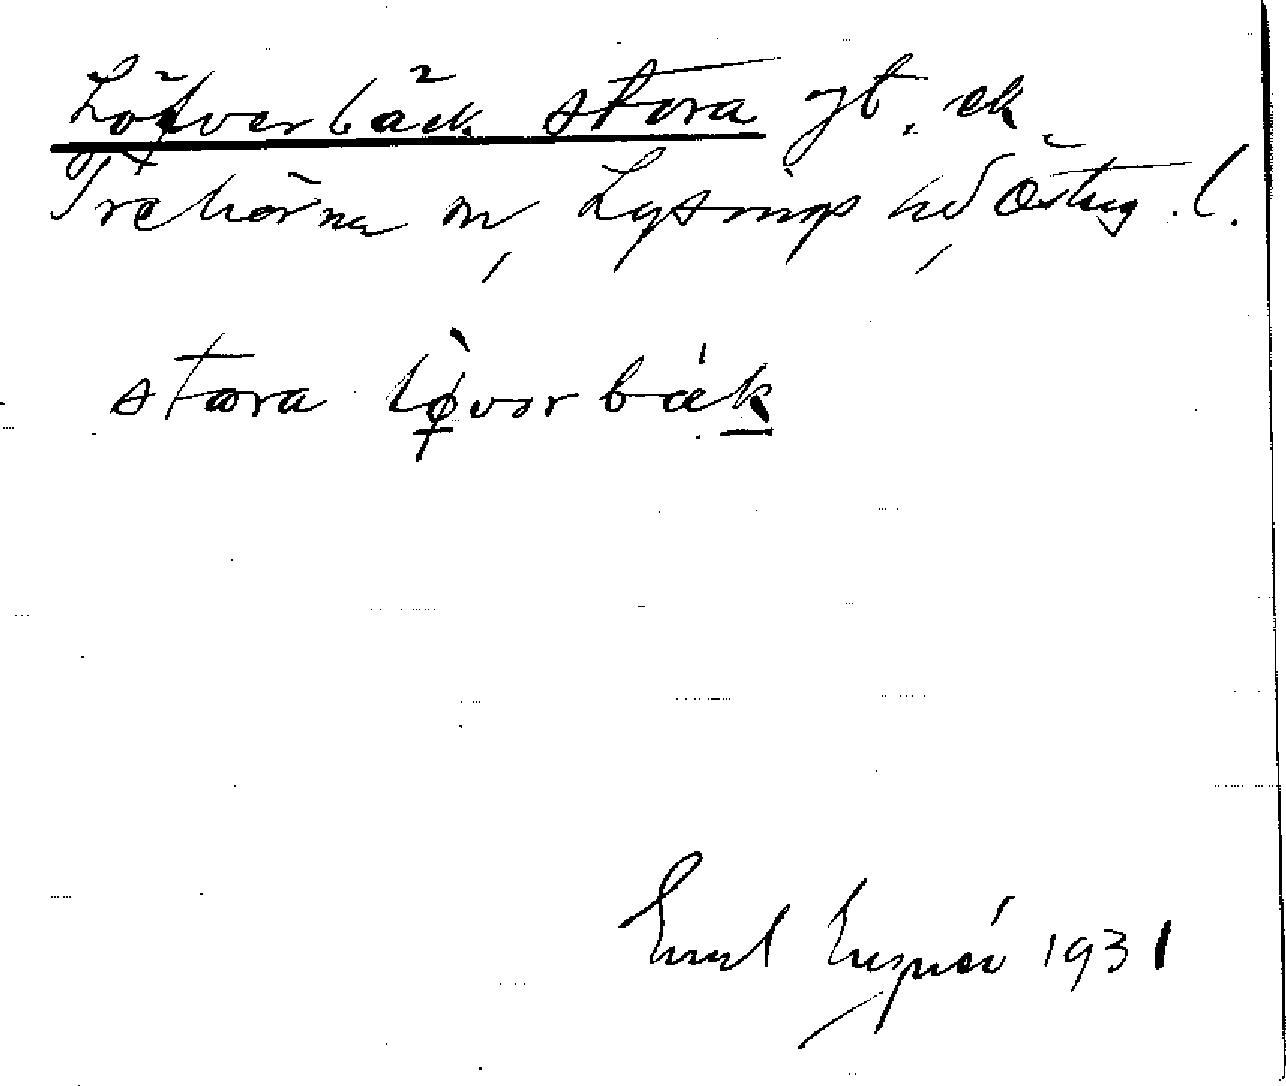 Löfverbäck stora gt. ek
Trehörna sn, Lysings hd Östug. l.
stora løvərbäk
Emil 1931